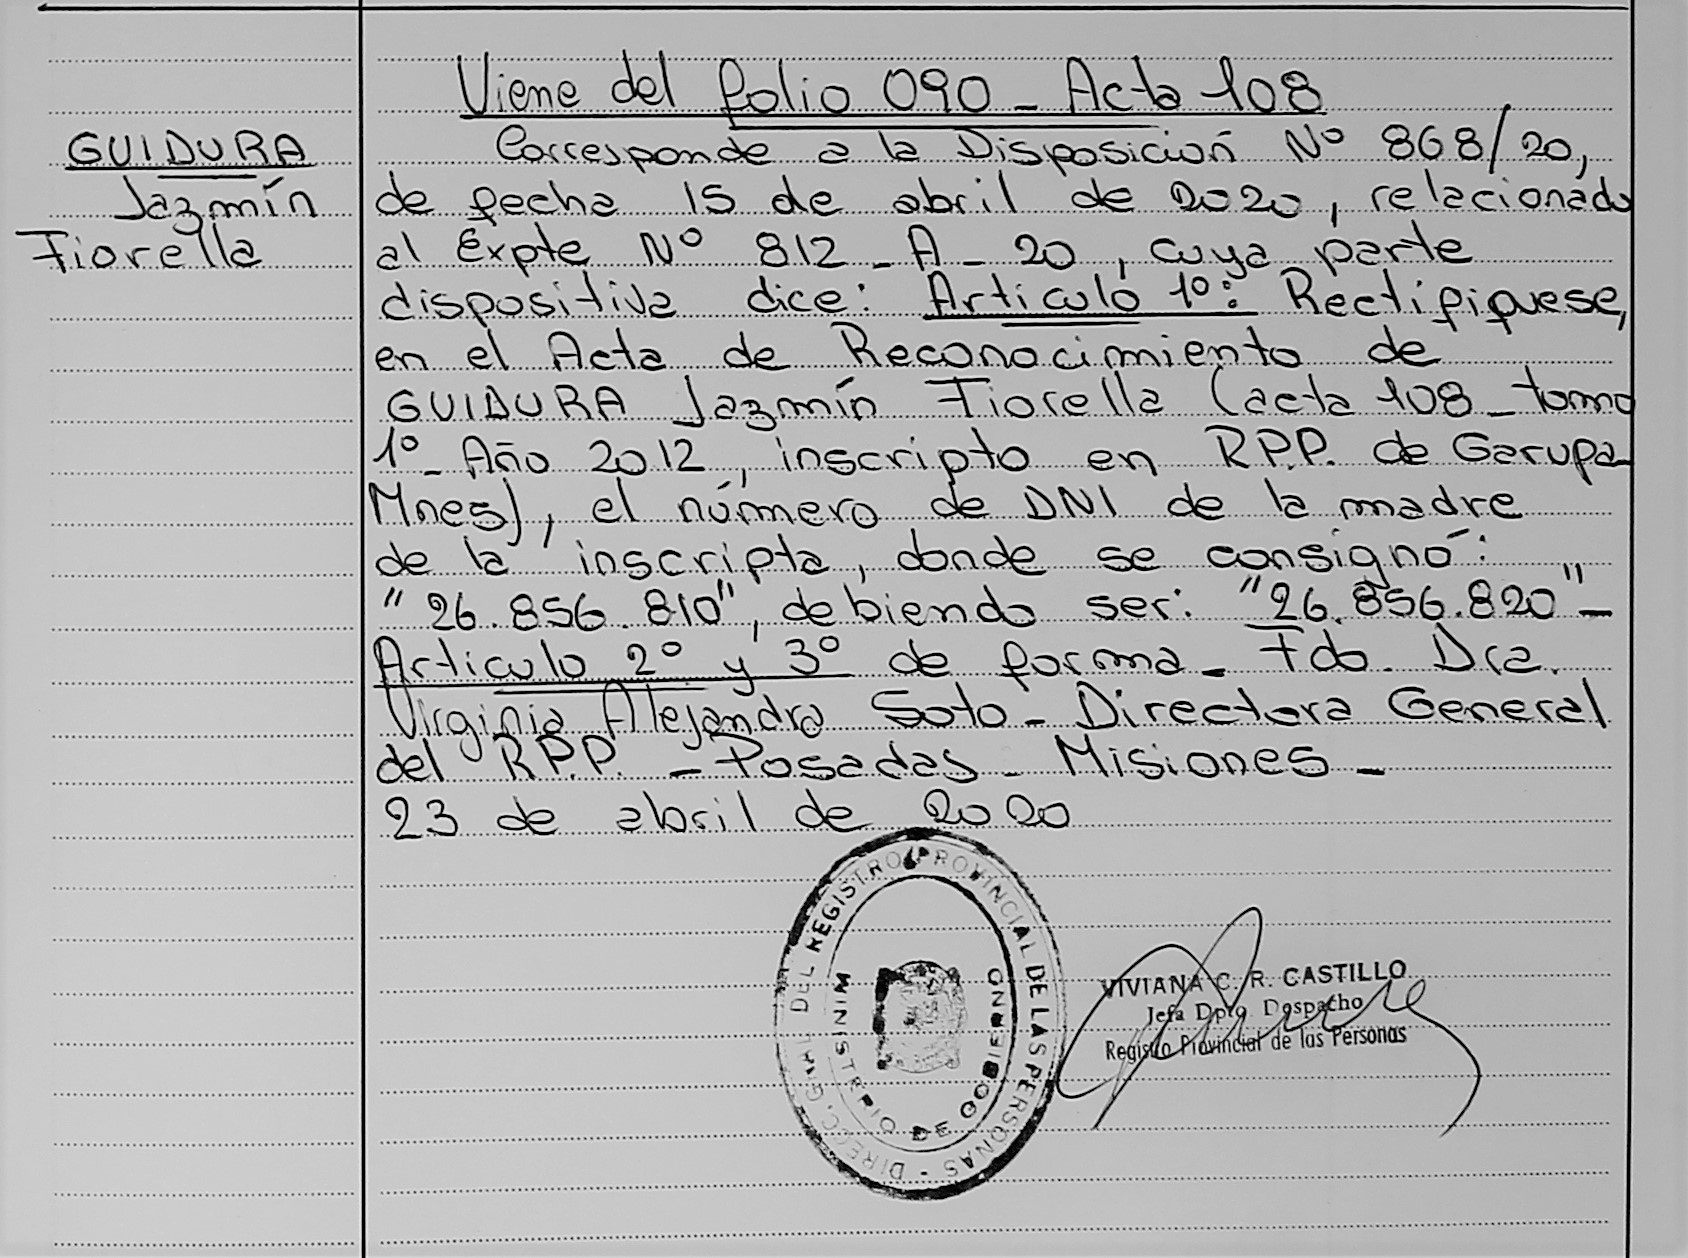 Viene del folio 090 - Acta 108
GUIDURA
Jazmín
Fiorella
Corresponde a la Disposición Nº 868/20,
de fecha 15 de abril de 2020, relacionado
al Expte Nº 812 - A - 20, cuya parte
dispositiva dice: Articulo 1º: Rectifiquese,
en el Acta de Reconocimiento de
GUIDURA Jazmín Fiorella (acta 108 - tomo
1º - Año 2012, inscripto en R.P.P. de Garupa
Mnes), el número de DNI de la madre
de la inscripta, donde se consignó:
"26.856.810", debiendo ser: "26.856.820" -
Articulo 2º y 3º de forma - Fdo. Dra.
Virginia Alejandra Soto - Directora General
del R.P.P. - Posadas - Misiones -
23 de abril de 2020
DIRECC. GRAL. DEL REGISTRO PROVINCIAL DE LAS PERSONAS -
MINISTERIO DE GOBIERNO
VIVIANA C. R. CASTILLO
Jefa Dpto Despacho
Registro Provincial de las Personas